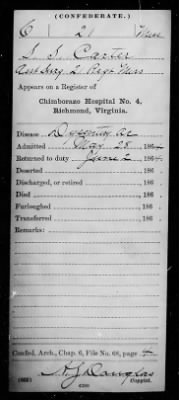 (CONFEDERATE.)
C 21 Miss
J. S. Carter
Asst Surg 2 Regt Miss
Appears on a Register of
Chimborazo Hospital No. 4,
Richmond, Virginia.
Disease Dysentery ac
Admitted May 28, 1864
Returned to duty June 2 1864
Deserted 186
Discharged, or retired 186
Died 186
Furloughed 186
Transferred 186
Remarks:
Confed. Arch., Chap. 6, File No. 68, page 4
H J Douglas
Copyist.